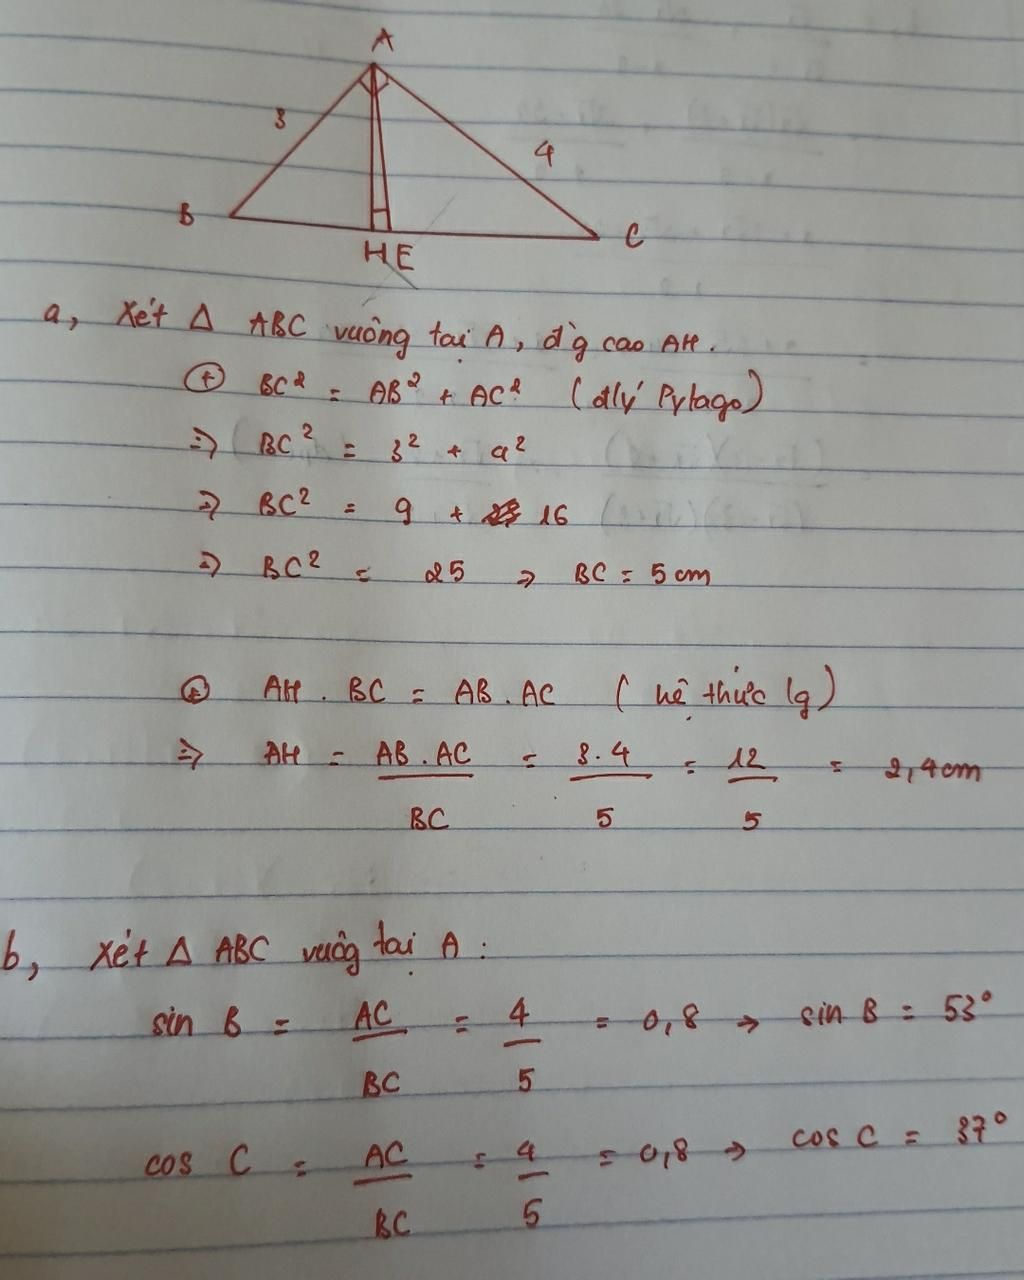 A
3
4
B
C
H E
a, Xét Δ ABC vuông tại A, đ'g cao AH.
+ BC² = AB² + AC² (đlý Pytago)
⇒ BC² = 3² + 4²
⇒ BC² = 9 + 16
⇒ BC² = 25 ⇒ BC = 5 cm
+ AH . BC = AB . AC (hệ thức lg)
⇒ AH = AB . AC / BC = 3 . 4 / 5 = 12 / 5 = 2,4cm
b, Xét Δ ABC vuôg tại A :
sin B = AC / BC = 4 / 5 = 0,8 → sin B = 53°
cos C = AC / BC = 4 / 5 = 0,8 → cos C = 37°